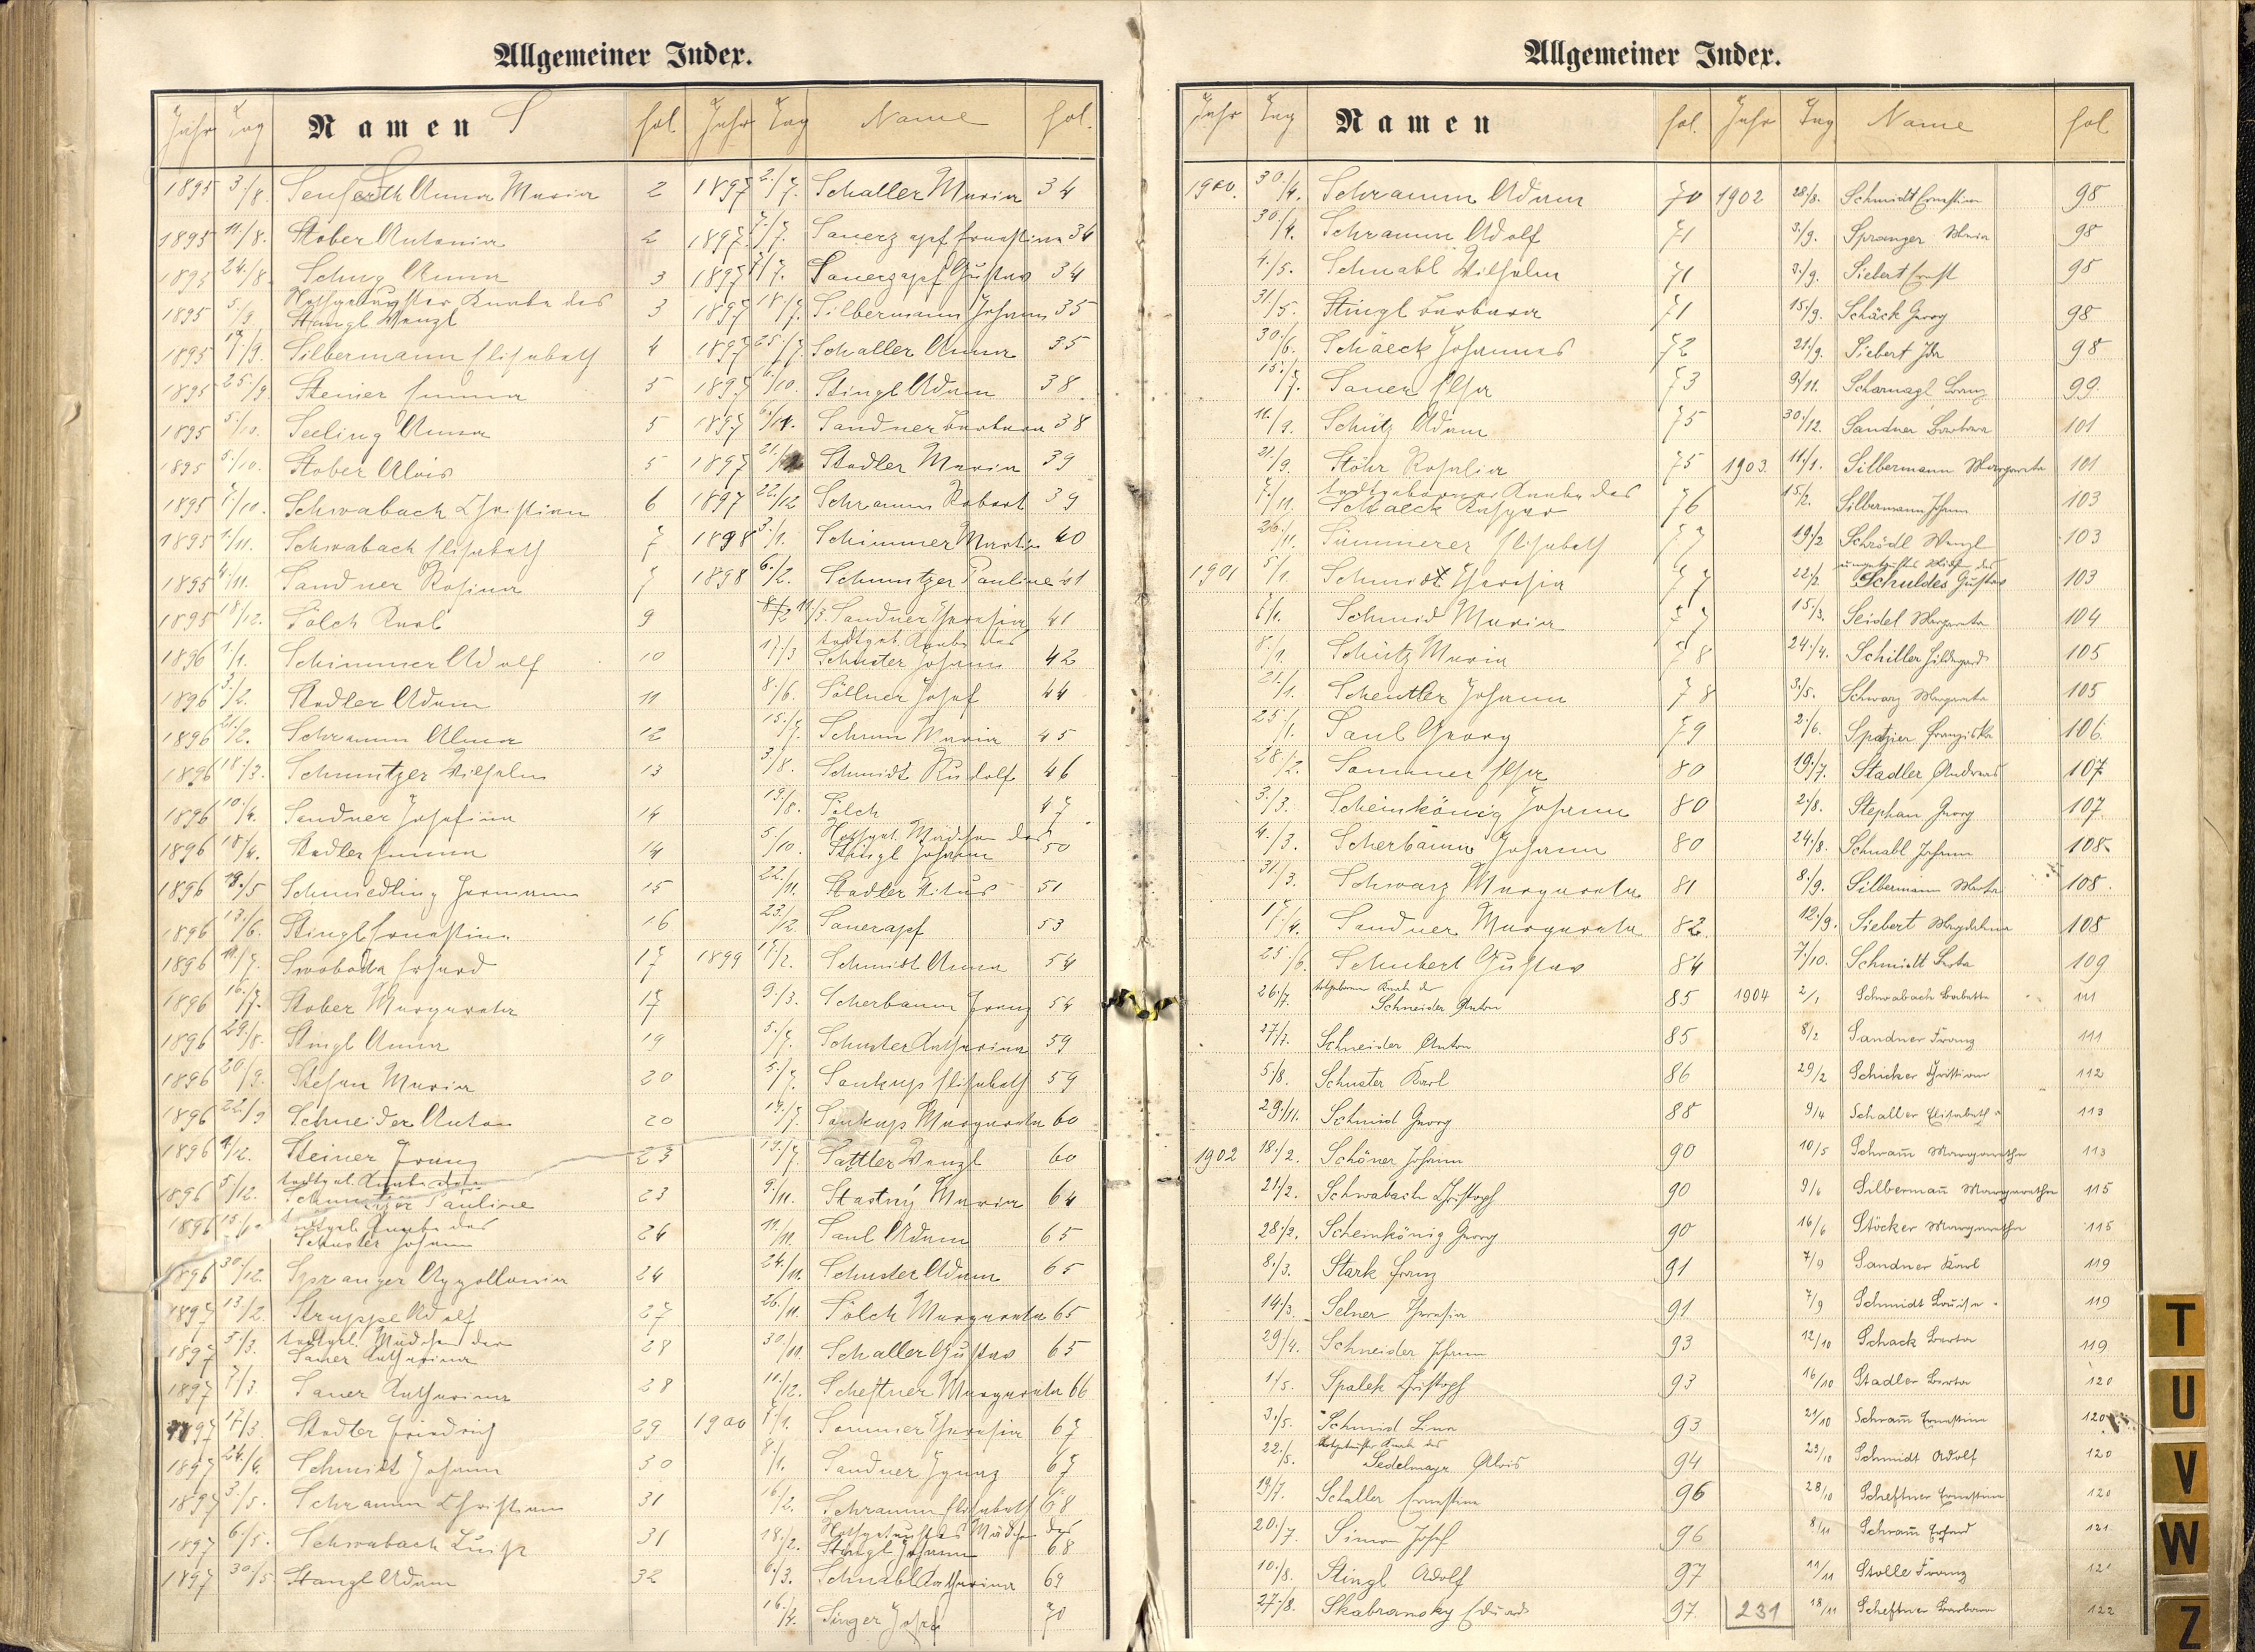 Allgemeiner Index.
Jahr Tag Namen S fol Jahr Tag Name fol.
1895 3./8. Senferth Anna Maria 2
1895 11./8. Stober Antonia 2
1895 24./8. Schug Anna 3
1895 5/9 Nothgetaufter Knabe des
Stangl Wenzl 3
1895 Silbermann Elisabeth 4
1895 25./9. Steiner Emma 5
1895 5./10. Seeling Anna 5
1895 5./10. Stober Alois 5
1895 7./10. Schwabach Christian 6
1895 1./11. Schwabach Elisabeth 7
1895 4./11. Sandner Rosina 7
1895 18/12. Sölch Karl 9
1896 1./1. Schimmer Adolf 10
1896 3./2. Stadler Adam 11
1896 21./2. Schramm Alma 12
1896 18./3. Schmutzer Wilhelm 13
1896 10./4. Sandner Josefina 14
1896 18/4. Stadler Emma 14
1896 19./5 Schmiedling Hermann 15
1896 13./6. Stingl Ernestine 16
1896 11./7. Swoboda Erhard 17
1896 16./7. Stober Margareta 17
1896 29./8. Stingl Anna 19
1896 20/9. Stefan Maria 20
1896 22./9 Schneider Anton 20
1896 4./12. Steiner Franz 23
1896 5/12. todtgeb. Knabe der
Schmutzer Pauline 23
1896 todtgeb. Knabe des
Schuster Johann 24
1896 30/12. Spranger Appollonia 24
1897 13./2. Struppe Adolf 27
1897 5./3. todtgeb. Mädchen der
Sauer Katharina 28
1897 7/3. Sauer Katharina 28
1897 17/3. Stadler Friedrich 29
1897 24./4. Schmidt Johann 30
1897 3./5. Schramm Christian 31
1897 6./5. Schwabach Luise 31
1897 30/5 Stangl Adam 32
1897 2./7. Schaller Maria 34
1897 7./7. Sauerzapf Ernestina 34
1897 7/7. Sauerzapf Gustav 34
1897 18./7. Silbermann Johann 35
1897 25./7. Schaller Anna 35
1897 6/10. Stingl Adam 38
1897 6./11. Sandner Barbara 38
1897 21./12 Stadler Maria 39
1897 22./12 Schramm Robert 39
1898 3./1. Schimmer Martin 40
1898 6./2. Schmutzer Pauline 41
11/3. Sandner Theresia 41
17/3 todtgeb. Knabe des
Schuster Johann 42
8./6. Söllner Josef 44
15./7. Schum Maria 45
3./8. Schmidt Rudolf 46
19./8. Sölch 47
5./10. Nothget. Mädchen des
Stingl Johann 50
22./11. Stadler Vitus 51
23./12. Sauerapf 53
1899 17/2. Schmidt Anna 54
9./3. Scherbaum Franz 54
5./7. Schuster Katharina 59
5./7. Soukup Elisabeth 59
Soukup Margareta 60
Sattler Wenzl 60
9./11. Stastný Maria 64
11./11. Saul Adam 65
24./11. Schuster Adam 65
26./11. Sölch Margareta 65
30./11. Schaller Gustav 65
11./12. Scheftner Margareta 66
1900 7/1. Sommer Theresia 67
8./1. Sandner Ignaz 67
16./2. Schramm Elisabeth 68
18./2. Nothgetauftes Mädchen des
Stingl Johann 68
6./3. Schnabl Katharina 69
16./4. Singer Josef 70
Allgemeiner Index.
Jahr Tag Namen fol. Jahr Tag Name fol
1900. 30./4. Schramm Adam 70
30./4. Schramm Adolf 71
4./5. Schnabl Wilhelm 71
31./5. Stingl Barbara 71
30./6. Schaeck Johannes 72
15./7. Sauer Elsa 73
11./9. Schütz Adam 75
21./9. Stöhr Rosalia 75
7./11. todtgeborner Knabe des
Schaeck Kaspar 76
26./11. Sümmerer Elisabeth 77
1901 5/1. Schmidt Theresia 77
6/1. Schmid Maria 77
8./1. Schütz Maria 78
21./1. Scheutler Johann 78
25./1. Saul Georg 79
28./2. Sommer Elsa 80
3./3. Scheinkönig Johann 80
4./3. Scherbaum Johann 80
31./3. Schwarz Margareta 81
17./4. Sandner Margareta 82.
25./6. Schubert Gustav 84
26./7. totgeborener Knabe des
Schneider Anton 85
27/7. Schneider Anton 85
5/8. Schuster Karl 86
29./11. Schmid Georg 88
1902 18./2. Schöner Johann 90
21./2. Schwabach Christoph 90
28./2. Scheinkönig Georg 90
8./3. Stark Franz 91
14./3. Selner Theresia 91
29/4. Schneider Johann 93
1/5. Spalek Christoph 93
3./5. Schmid Lina 93
22./5. Notgetaufter Knabe des
Sedelmayr Alois 94
19/7. Schaller Ernestine 96
20./7. Simon Josef 96
10./8. Stingl Adolf 97
27./8. Skabransky Eduard 97.
231
1902 28./8. Schmidt Ernestine 98
3./9. Spranger Maria 98
3./9. Siebert Ernst 98
15./9. Schäck Georg 98
21./9. Siebert Ida 98
9./11. Scharnagl Franz 99
30./12. Sandner Barbara 101
1903. 11./1. Silbermann Margareta 101
15./2. Silbermann Johann 103
19./2 Schrödl Wenzl 103
22./2. ungetauftes Mädchen des
Schuldes Gustav 103
15./3. Seidel Margareta 104
24./4. Schiller Hildegard 105
3./5. Schwarz Margareta 105
2./6. Spatzier Franziska 106.
19./7. Stadler Andreas 107
2./8. Stephan Georg 107.
24./8. Schnabl Johann 108.
8./9. Silbermann Marta 108.
12./9. Siebert Magdalena 108
7./10. Schmidt Berta 109
1904 2/1 Schwabach Babette 111
8/2 Sandner Franz 111
29/2 Schicker Christian 112
9/4 Schaller Elisabeth 113
10/5 Schram̅ Margaretha 113
9/6 Silberman̅ Margaretha 115
16/6 Stöcker Margaretha 115
7/9 Sandner Karl 119
7/9 Schmidt Louise 119
12/10 Schack Berta 119
16/10 Stadler Berta 120
21/10 Schram̅ Ernestine 120
23/10 Schmidt Adolf 120
28/10 Scheftner Ernestine 120
8/11 Schram̅ Erhard 121
11/11 Stolle Franz 121
18/11 Scheftner Barbara 122
T
U
V
W
Z